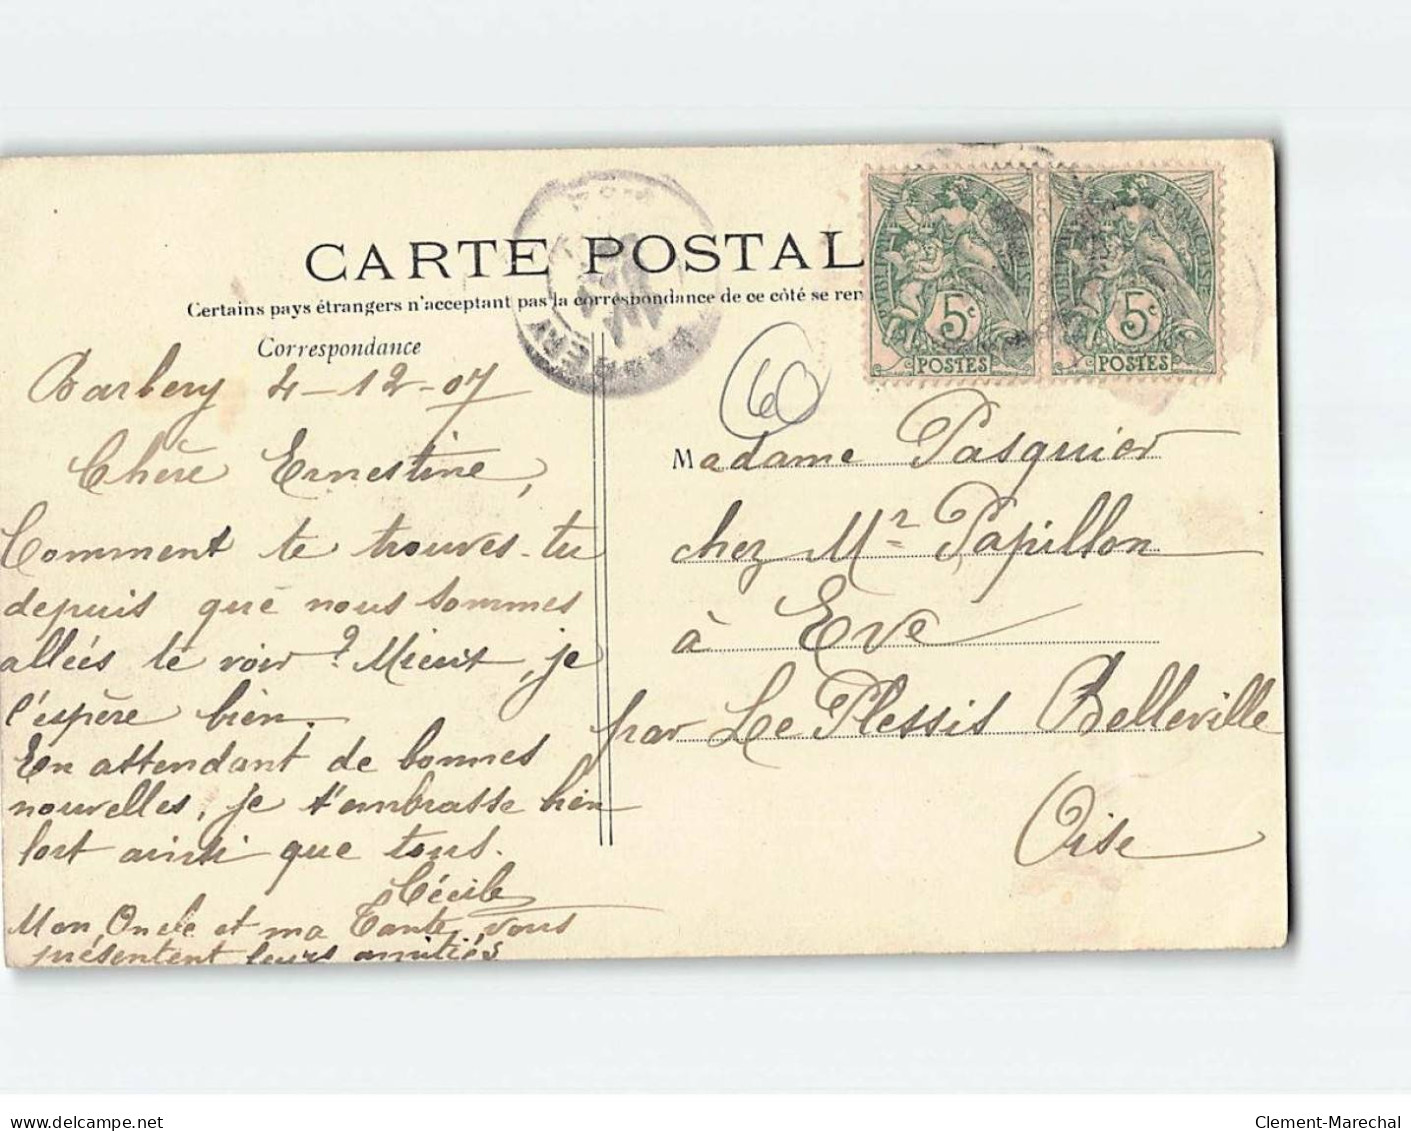 CARTE POSTAL
Certains pays étrangers n'acceptant pas la correspondance de ce côté se ren
Correspondance
Barbery 4-12-07
Chère Ernestine,
Comment te trouves-tu
depuis que nous sommes
allées te voir ? Mieux, je
l'espère bien.
En attendant de bonnes
nouvelles, je t'embrasse bien
fort ainsi que tous.
Cécile
Mon Oncle et ma Tante vous
présentent leurs amitiés
60
FRANÇAISE
5c
POSTES
5c
POSTES
Madame Pasquier
chez Mr Papillon
à Eve
par Le Plessis Belleville
Oise
delcampe.net
Clement-Marechal